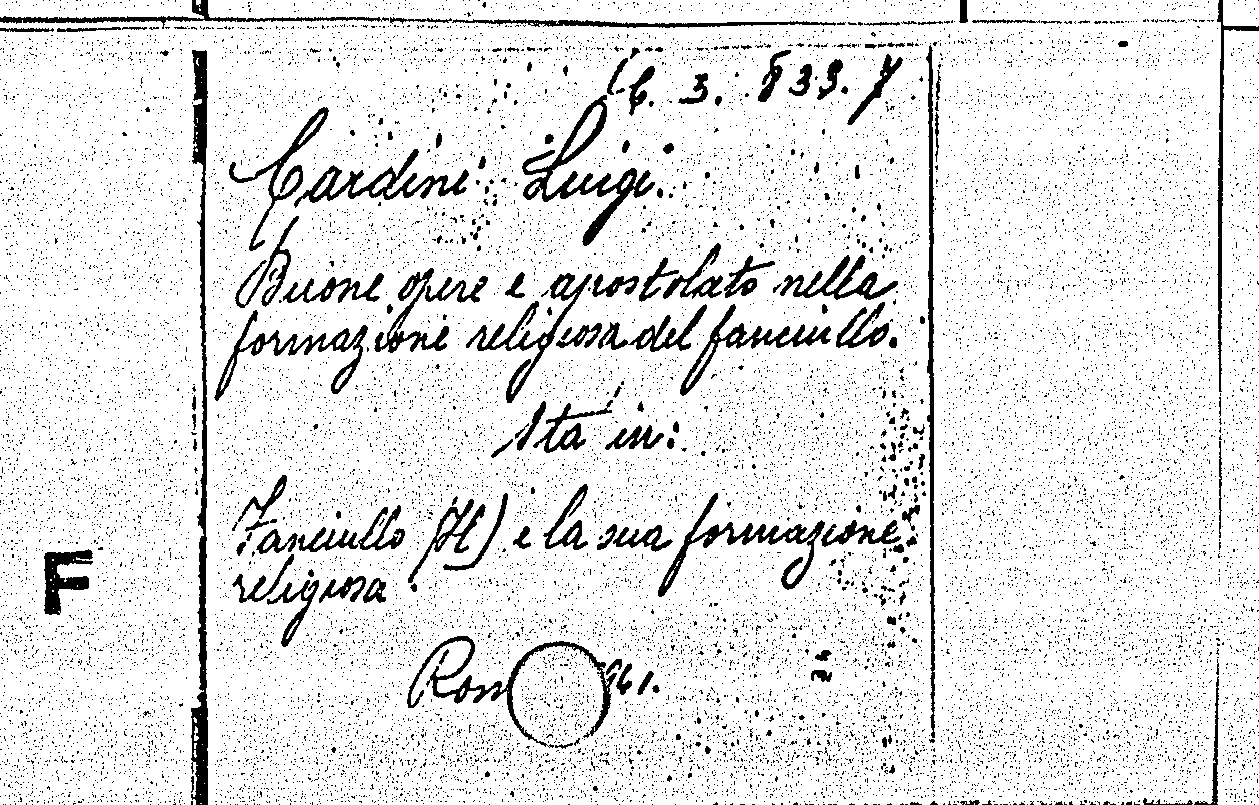 6. 3. 833. 7
Cardini Luigi.
Buone opere e apostolato nella
formazione religiosa del fanciullo.
Sta in:
Fanciullo (Il) e la sua formazione
religiosa.
F
Rom 961.